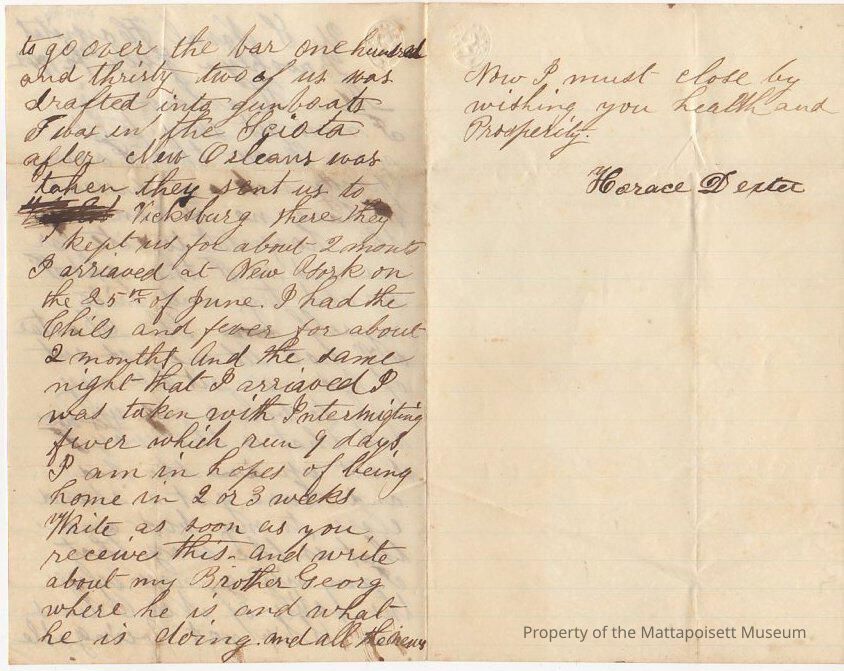 to go over the bar one hundred
and thristy two of us was
drafted into gunboats
I was in the Sciota
after New Orleans was
taken they sent us to
Vicksburg there they
kept us for about 2 monts
I arriaved at New York on
the 25th of June. I had the
Chils and fever for about
2 months And the same
night that I arriaved I
was taken with Intermigting
fever which run 9 days
I am in hopes of being
home in 2 or 3 weeks
Write as soon as you
receive this and write
about my Brother Georg
where he is and what
he is doing. and all the news
Now I must close by
wishing you health and
Prosperity.
Horace Dexter
Property of the Mattapoisett Museum